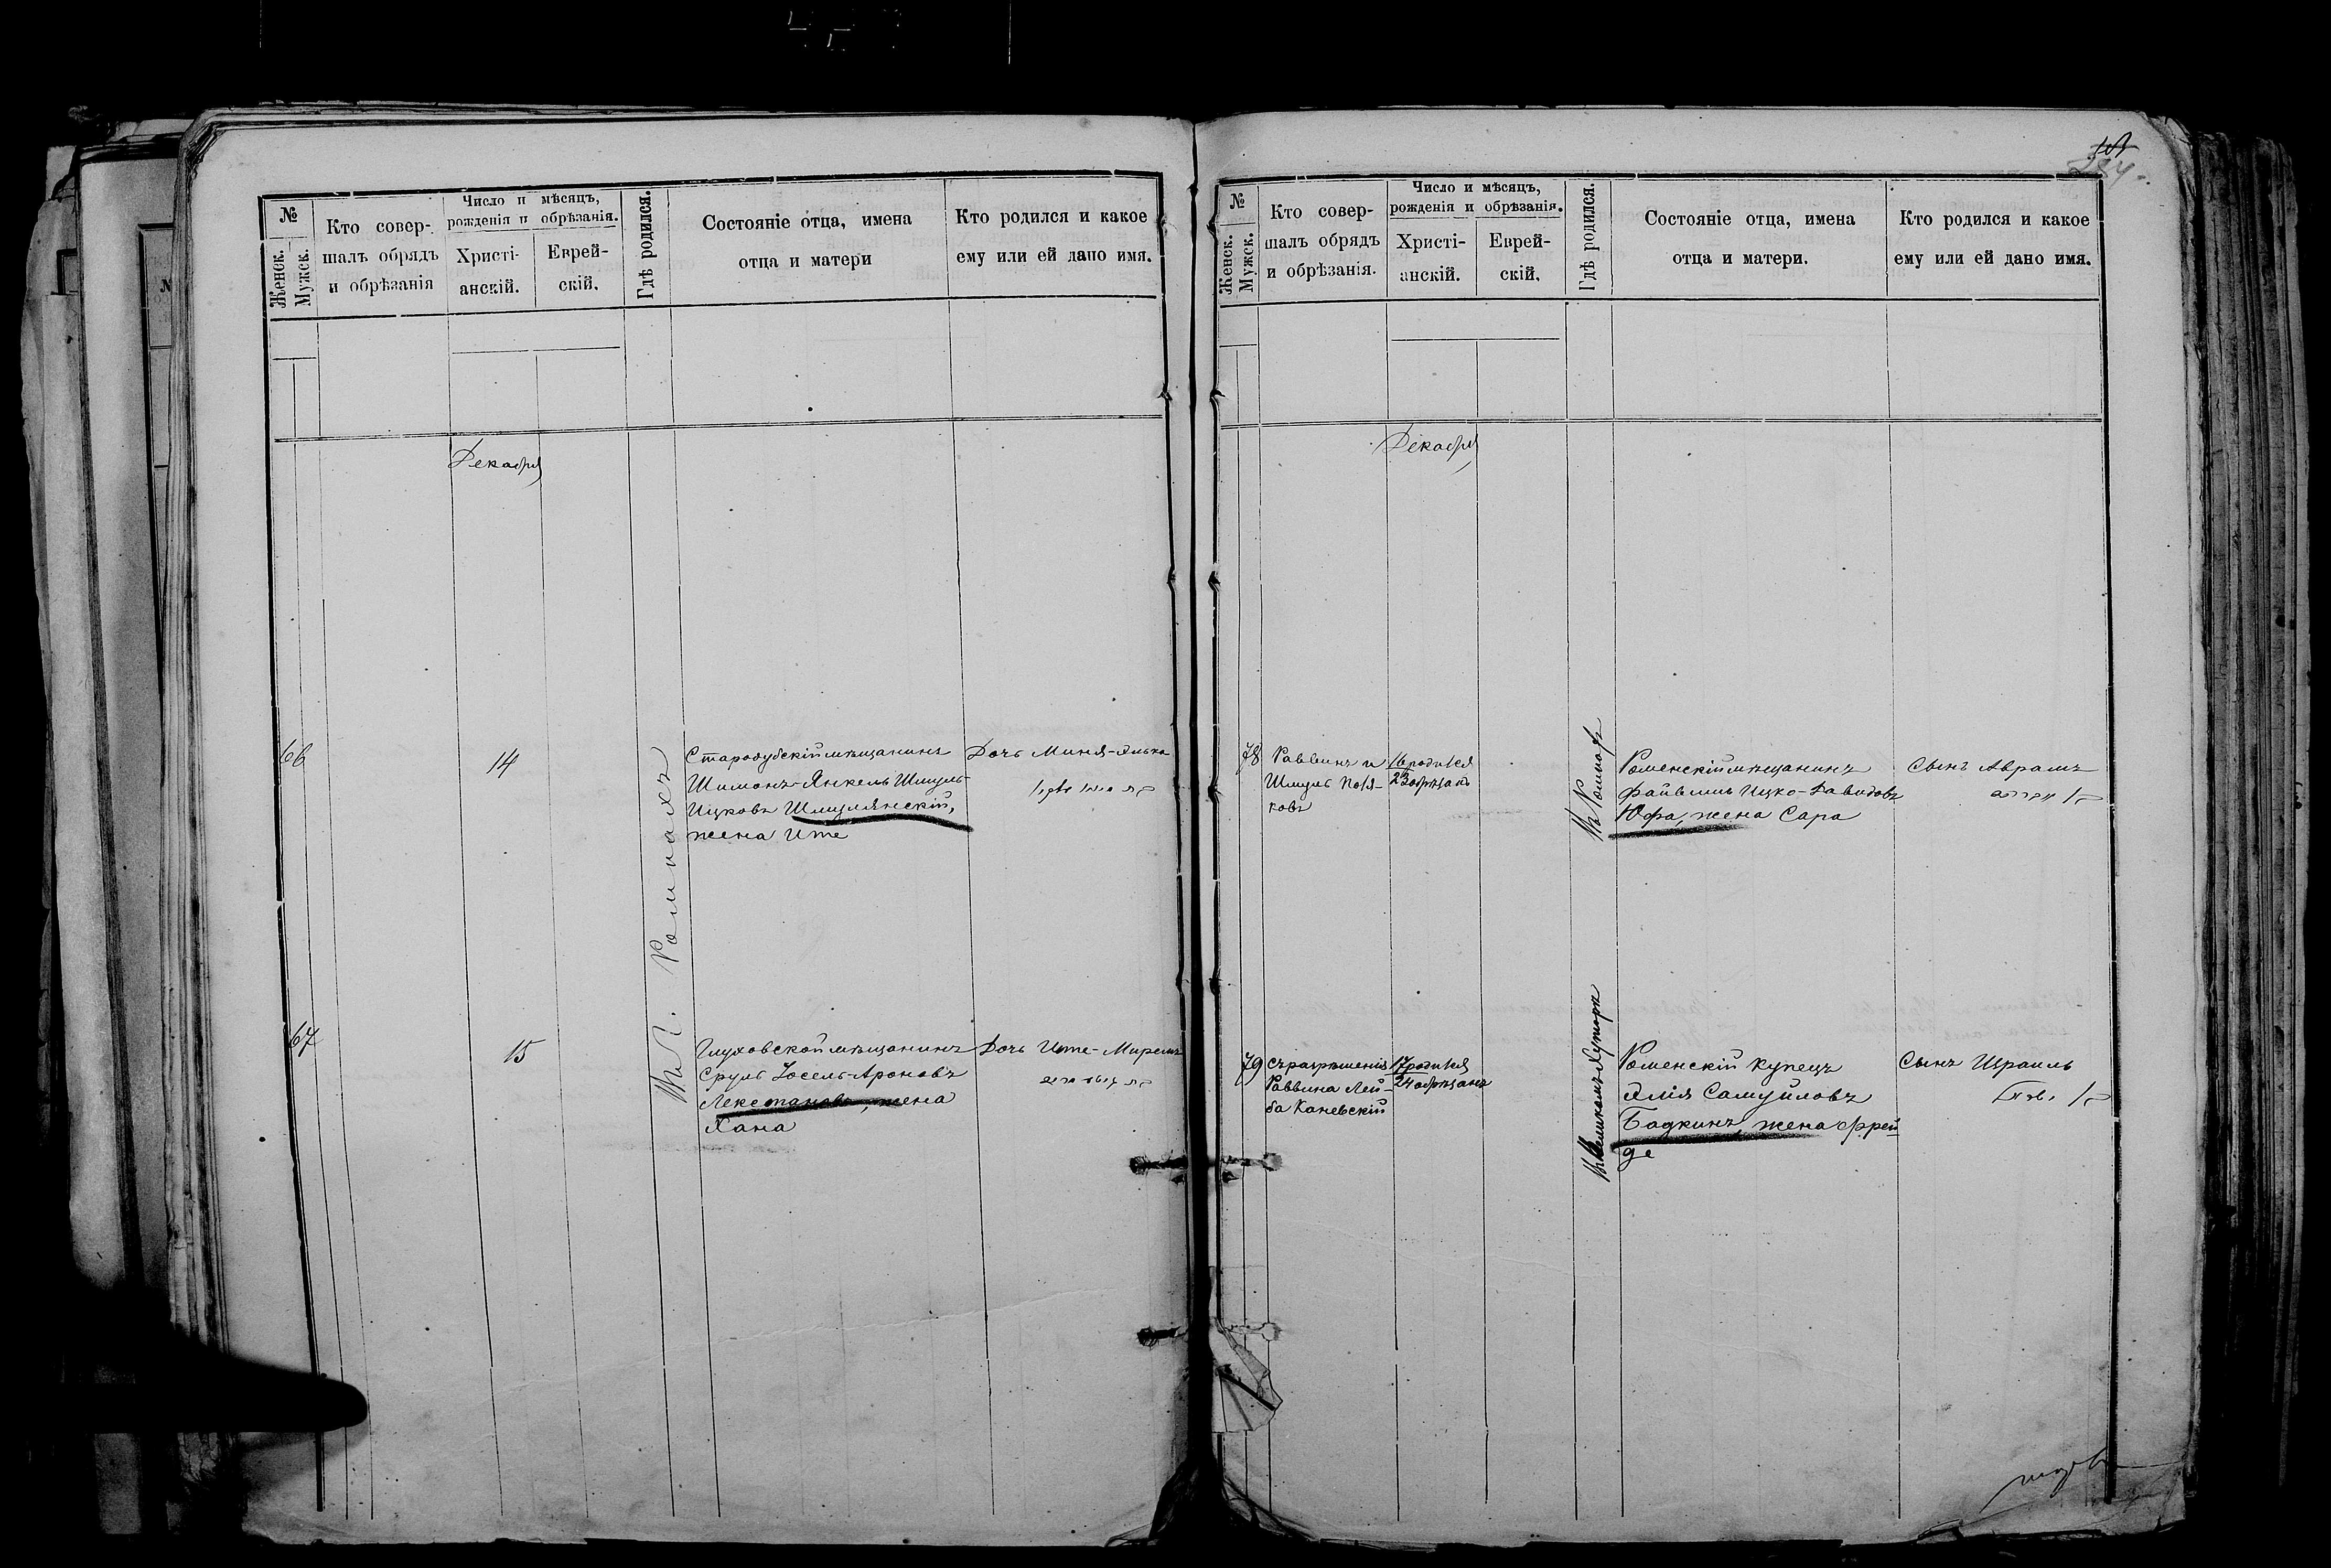 №
Женск.
Мужск.
Кто совер-
шалъ обрядъ
и обрѣзанія
Число и мѣсяцъ,
рожденія и обрѣзанія.
Христі-
анскій.
Еврей-
скій.
Гдѣ родился.
Состояніе отца, имена
отца и матери
Кто родился и какое
ему или ей дано имя.
Декабря
66
14
Въ г. Ромнахъ
Стародубскій мѣщанинъ
Шимонъ-Янкель Шмуль-
Ицковъ Шмулянскій,
жена Ите
Дочь Миня-
67
15
Глуховской мѣщанинъ
Сруль Іосель-Ароновъ
жена
Хана
Дочь Ите-Мирель
№
Женск.
Мужск.
Кто совер-
шалъ обрядъ
и обрѣзанія.
Число и мѣсяцъ,
рожденія и обрѣзанія.
Христі-
анскій.
Еврей-
скій.
Гдѣ родился.
Состояніе отца, имена
отца и матери.
Кто родился и какое
ему или ей дано имя.
Декабря
78
Раввинъ и
Шмуль Поля-
ковъ
16 родился
23 обрѣзанъ
Роменскій мѣщанинъ
Файвишъ Ицко-Давидовъ
Юфа, жена Сара
Сынъ Абрамъ
79
Съ разрѣшенія
Раввина Лей-
ба Каневскій
17 родился
24 обрѣзанъ
Роменскій купецъ
Илія Самуиловъ
Бадкинъ, жена Фрей
де
Сынъ Израиль